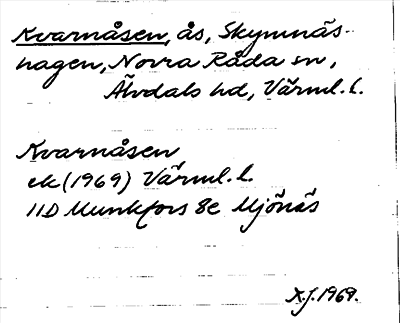 Kvarnåsen, ås, Skymnäs-
hagen, Norra Råda sn,
Älvdals hd, Värml. l.
Kvarnåsen
ek (1969) Värml. l.
11D Munkfors 8e Mjönäs
K.J. 1969.